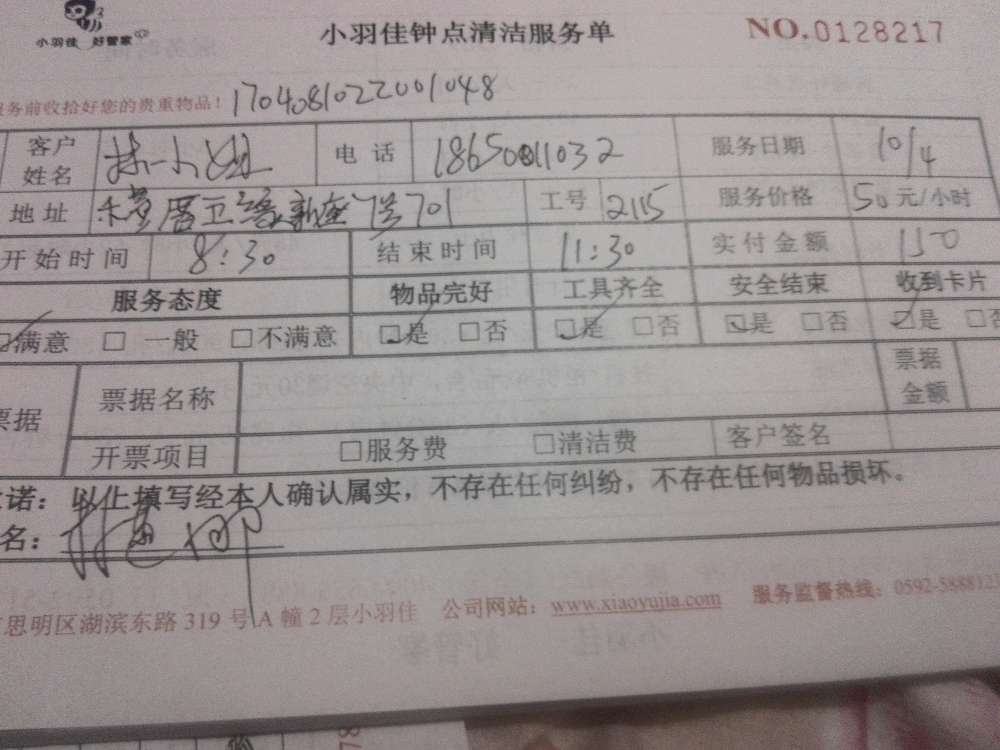 小羽佳 好管家
小羽佳钟点清洁服务单
NO.0128217
服务前收拾好您的贵重物品! 1704081022001048
客户姓名 林小姐 电话 18650011032 服务日期 10/4
地址 701 工号 2115 服务价格 50元/小时
开始时间 8:30 结束时间 11:30 实付金额 150
服务态度 物品完好 工具齐全 安全结束 收到卡片
☑满意 □ 一般 □不满意 ☑是 □否 ☑是 □否 ☑是 □否 ☑是 □否
票据 票据名称 票据金额
开票项目 □服务费 □清洁费 客户签名
诺: 以上填写经本人确认属实,不存在任何纠纷,不存在任何物品损坏。
名:
思明区湖滨东路 319 号 A 幢 2 层小羽佳 公司网站: www.xiaoyujia.com 服务监督热线: 0592-588812